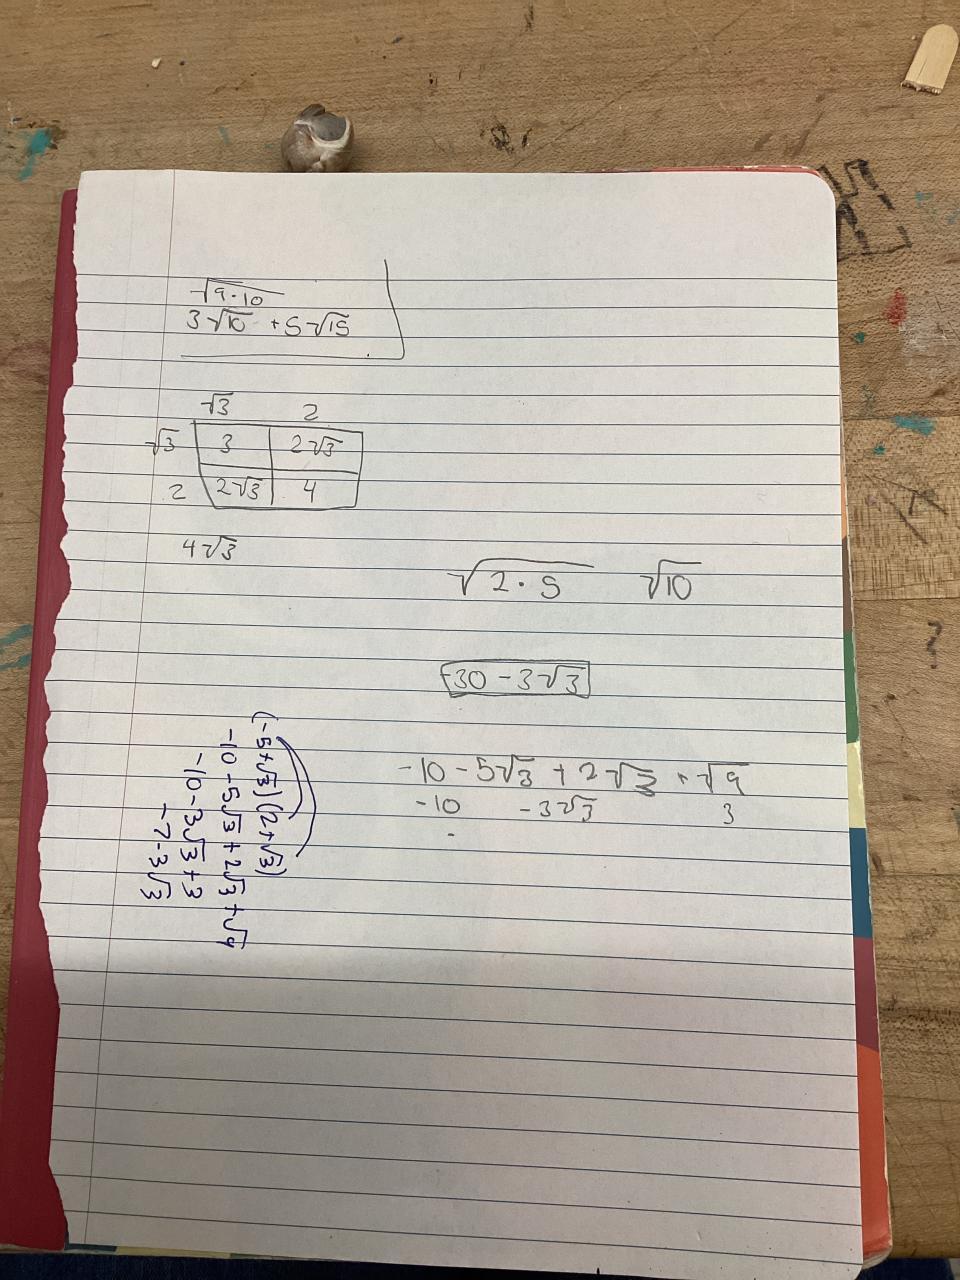 √9·10
3√10 + 5√15
√3 2
√3 3 2√3
2 2√3 4
4√3
√2·5 √10
-30 - 3√3
-10 - 5√3 + 2√3 + √9
-10 -3√3 3
-
(-5+√3)(2+√3)
-10 - 5√3 + 2√3 + √9
-10 - 3√3 + 3
-7 - 3√3
?